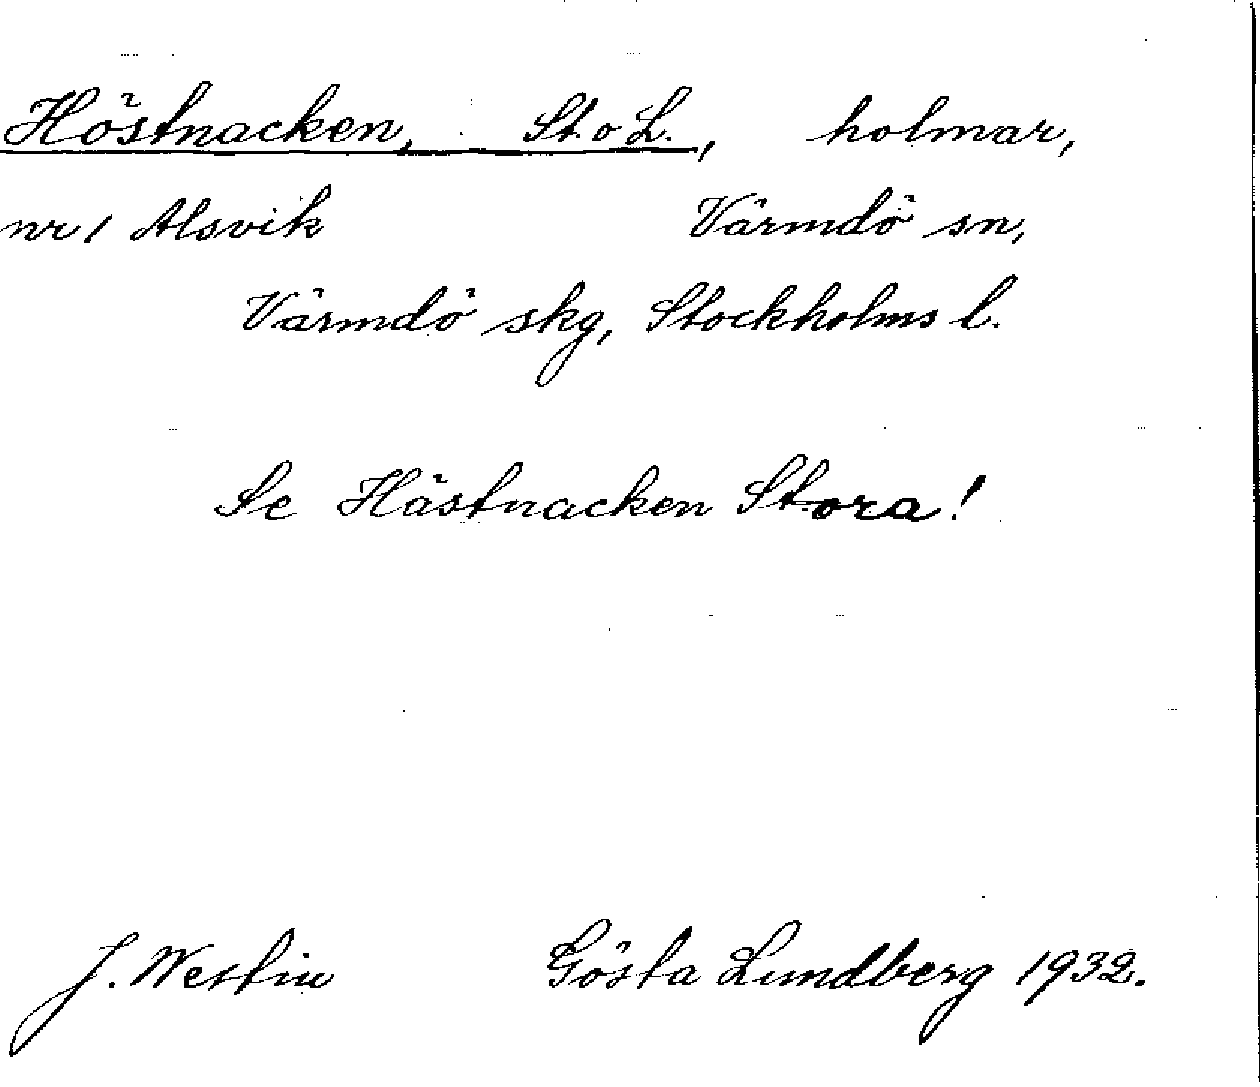 Höstnacken, St. o L., holmar,
nr 1 Alsvik Värmdö sn,
Värmdö skg, Stockholms l.
Se Hästnacken Stora!
J. Westin Gösta Lundberg 1932.